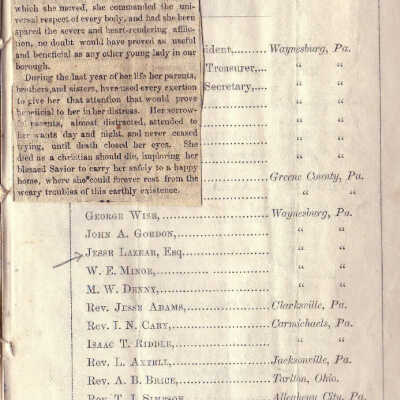 which she moved, she commanded the uni-
versal respect of every body, and had she been
spared the severe and heart-rendering afflic-
tion, no doubt would have proved as useful
and beneficial as any other young lady in our
borough.
During the last year of her life her parents,
brothers, and sisters, have used every exertion
to give her that attention that would prove
beneficial to her in her distress. Her sorrow-
parents, almost distracted, attended to
her wants day and night, and never ceased
trying, until death closed her eyes. She
died as a christian should die, imploring her
blessed Savior to carry her safely to a happy
home, where she could forever rest from the
weary troubles of this earthly existence.
ident, Waynesburg, Pa.
Treasurer, " "
Secretary, " "
" "
" "
" "
" "
Greene County, Pa.
" "
GEORGE WISE, Waynesburg, Pa.
JOHN A. GORDON, " "
JESSE LAZEAR, ESQ. " "
W. E. MINOR, " "
M. W. DENNY, " "
REV. JESSE ADAMS, Clarksville, Pa.
REV. I. N. CARY, Carmichaels, Pa.
ISAAC T. RIDDLE, " "
REV. L. AXTELL, Jacksonville, Pa.
REV. A. B. BRICE, Tarlton, Ohio.
REV. T. J. SIMPSON, Allegheny City, Pa.